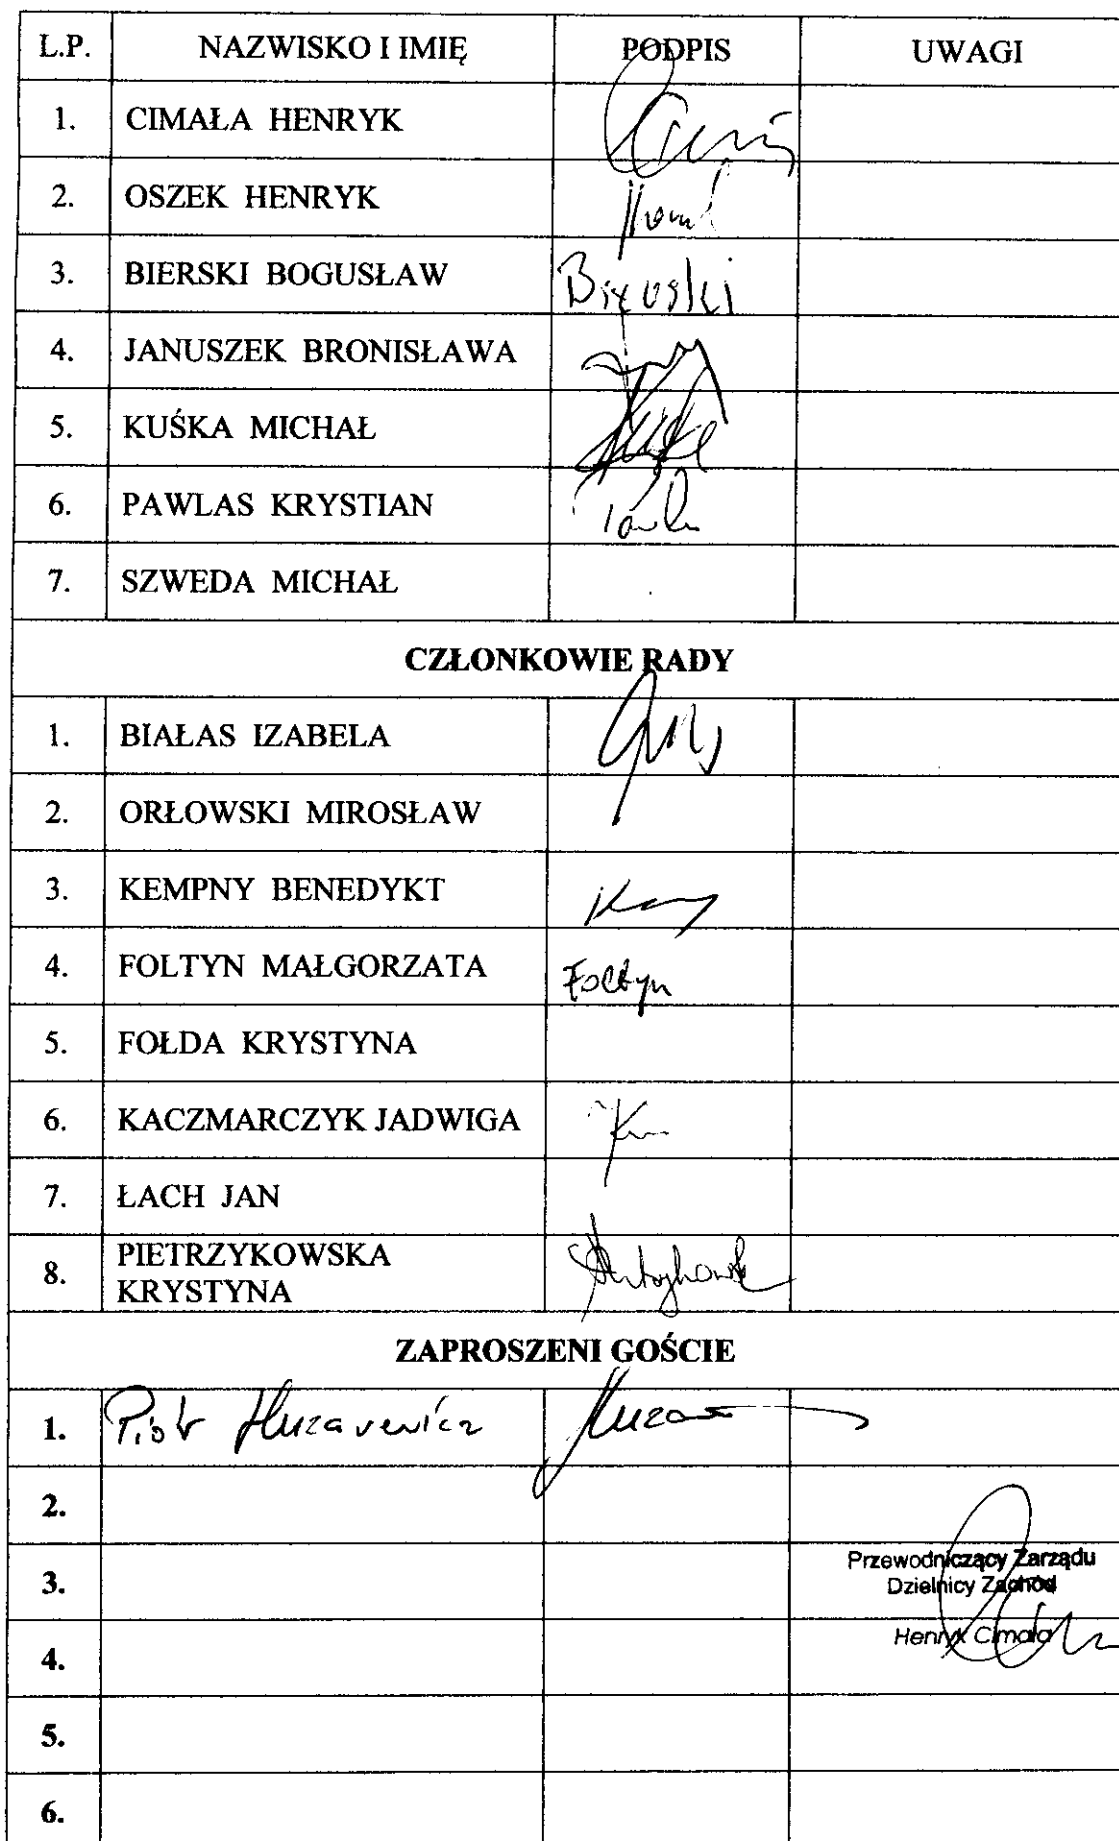 L.P. NAZWISKO I IMIĘ PODPIS UWAGI
1. CIMAŁA HENRYK
2. OSZEK HENRYK
3. BIERSKI BOGUSŁAW
4. JANUSZEK BRONISŁAWA
5. KUŚKA MICHAŁ
6. PAWLAS KRYSTIAN
7. SZWEDA MICHAŁ
CZŁONKOWIE RADY
1. BIAŁAS IZABELA
2. ORŁOWSKI MIROSŁAW
3. KEMPNY BENEDYKT
4. FOLTYN MAŁGORZATA Foltyn
5. FOŁDA KRYSTYNA
6. KACZMARCZYK JADWIGA
7. ŁACH JAN
8. PIETRZYKOWSKA
KRYSTYNA
ZAPROSZENI GOŚCIE
1. Piotr Huzarewicz
2.
3. Przewodniczący Zarządu
Dzielnicy Zachód
Henryk Cimała
4.
5.
6.